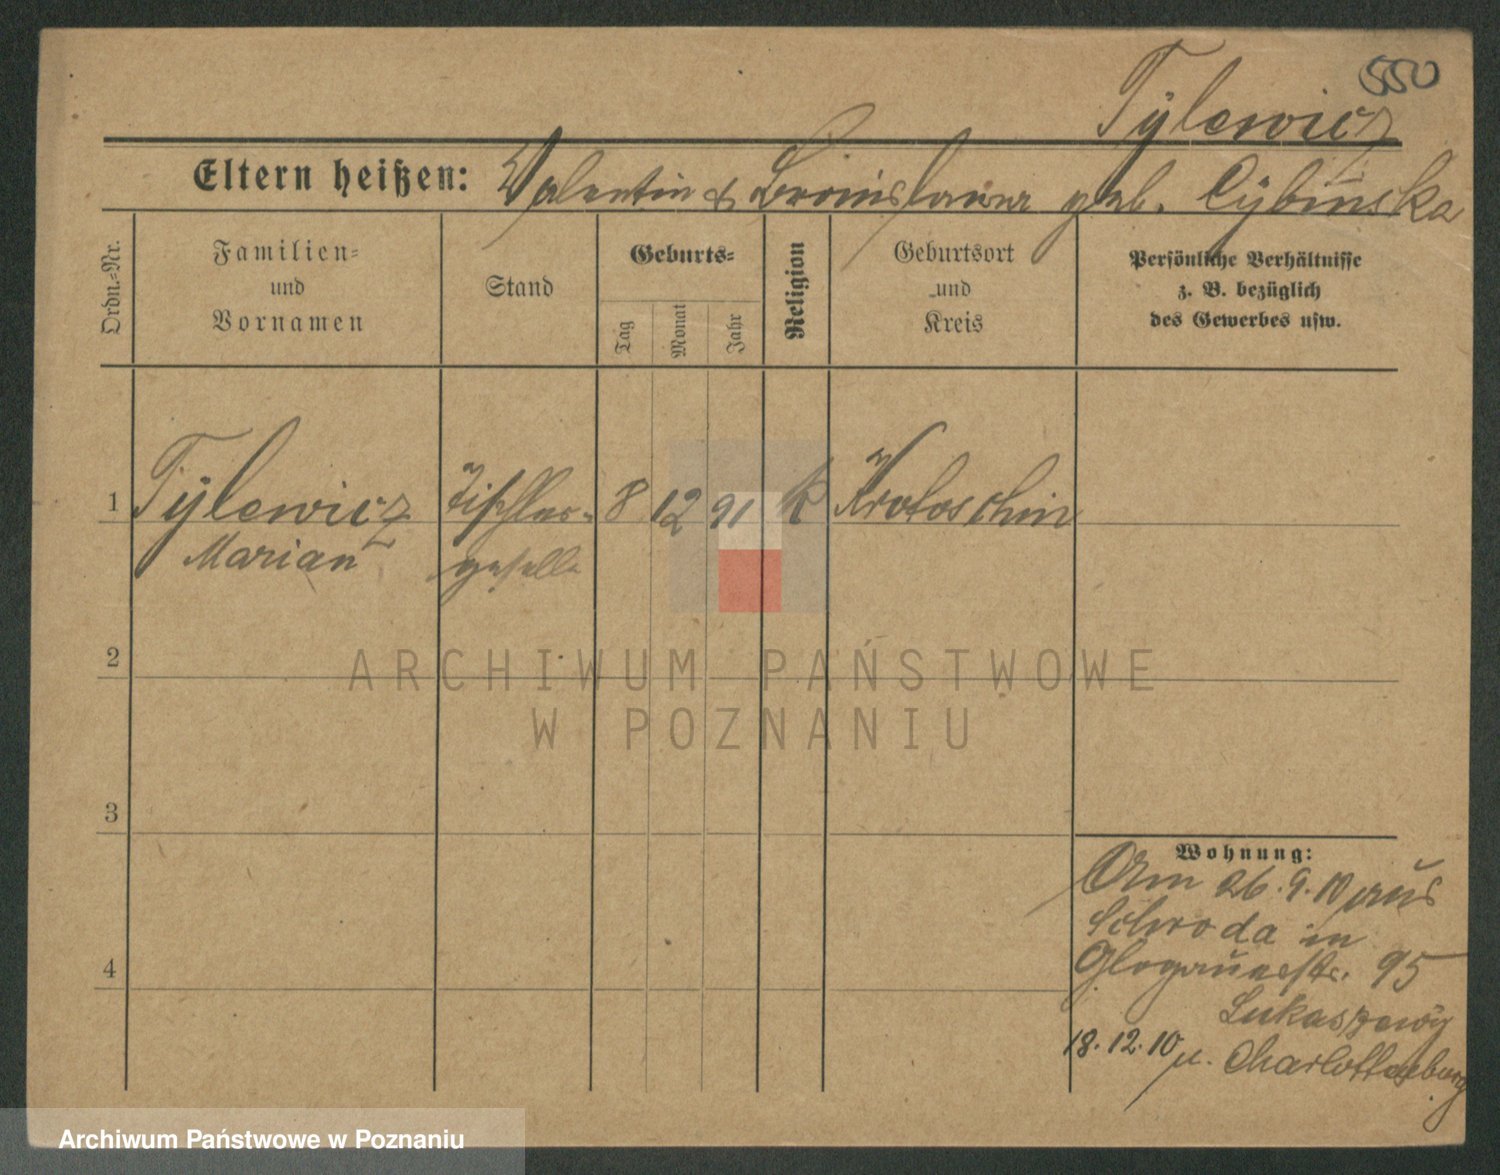 550
Tÿlewicz
Eltern heißen: Valentin & Bronislawa geb. Cÿbinska
Ordn.-Nr.
Familien-
und
Vornamen
Stand
Geburts-
Tag
Monat
Jahr
Religion
Geburtsort
und
Kreis
Persönliche Verhältnisse
z. B. bezüglich
des Gewerbes usw.
1 Tÿlewicz Tischler- 8 12 91 k Krotoschin
Marian geselle
2
ARCHIWUM PAŃSTWOWE
W POZNANIU
3
Wohnung:
Am 26.9.10 aus
Schroda in
4 Glogauerstr. 95
18.12.10 n. Charlottenburg
Archiwum Państwowe w Poznaniu